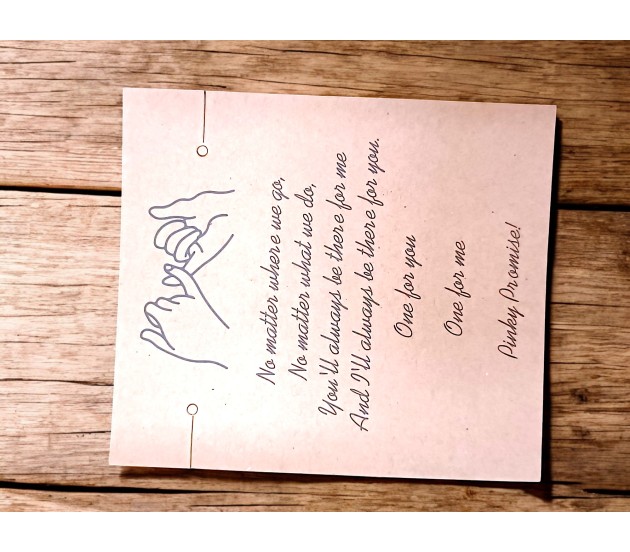 No matter where we go,
No matter what we do,
You'll always be there for me
And I'll always be there for you.
One for you
One for me
Pinky Promise!